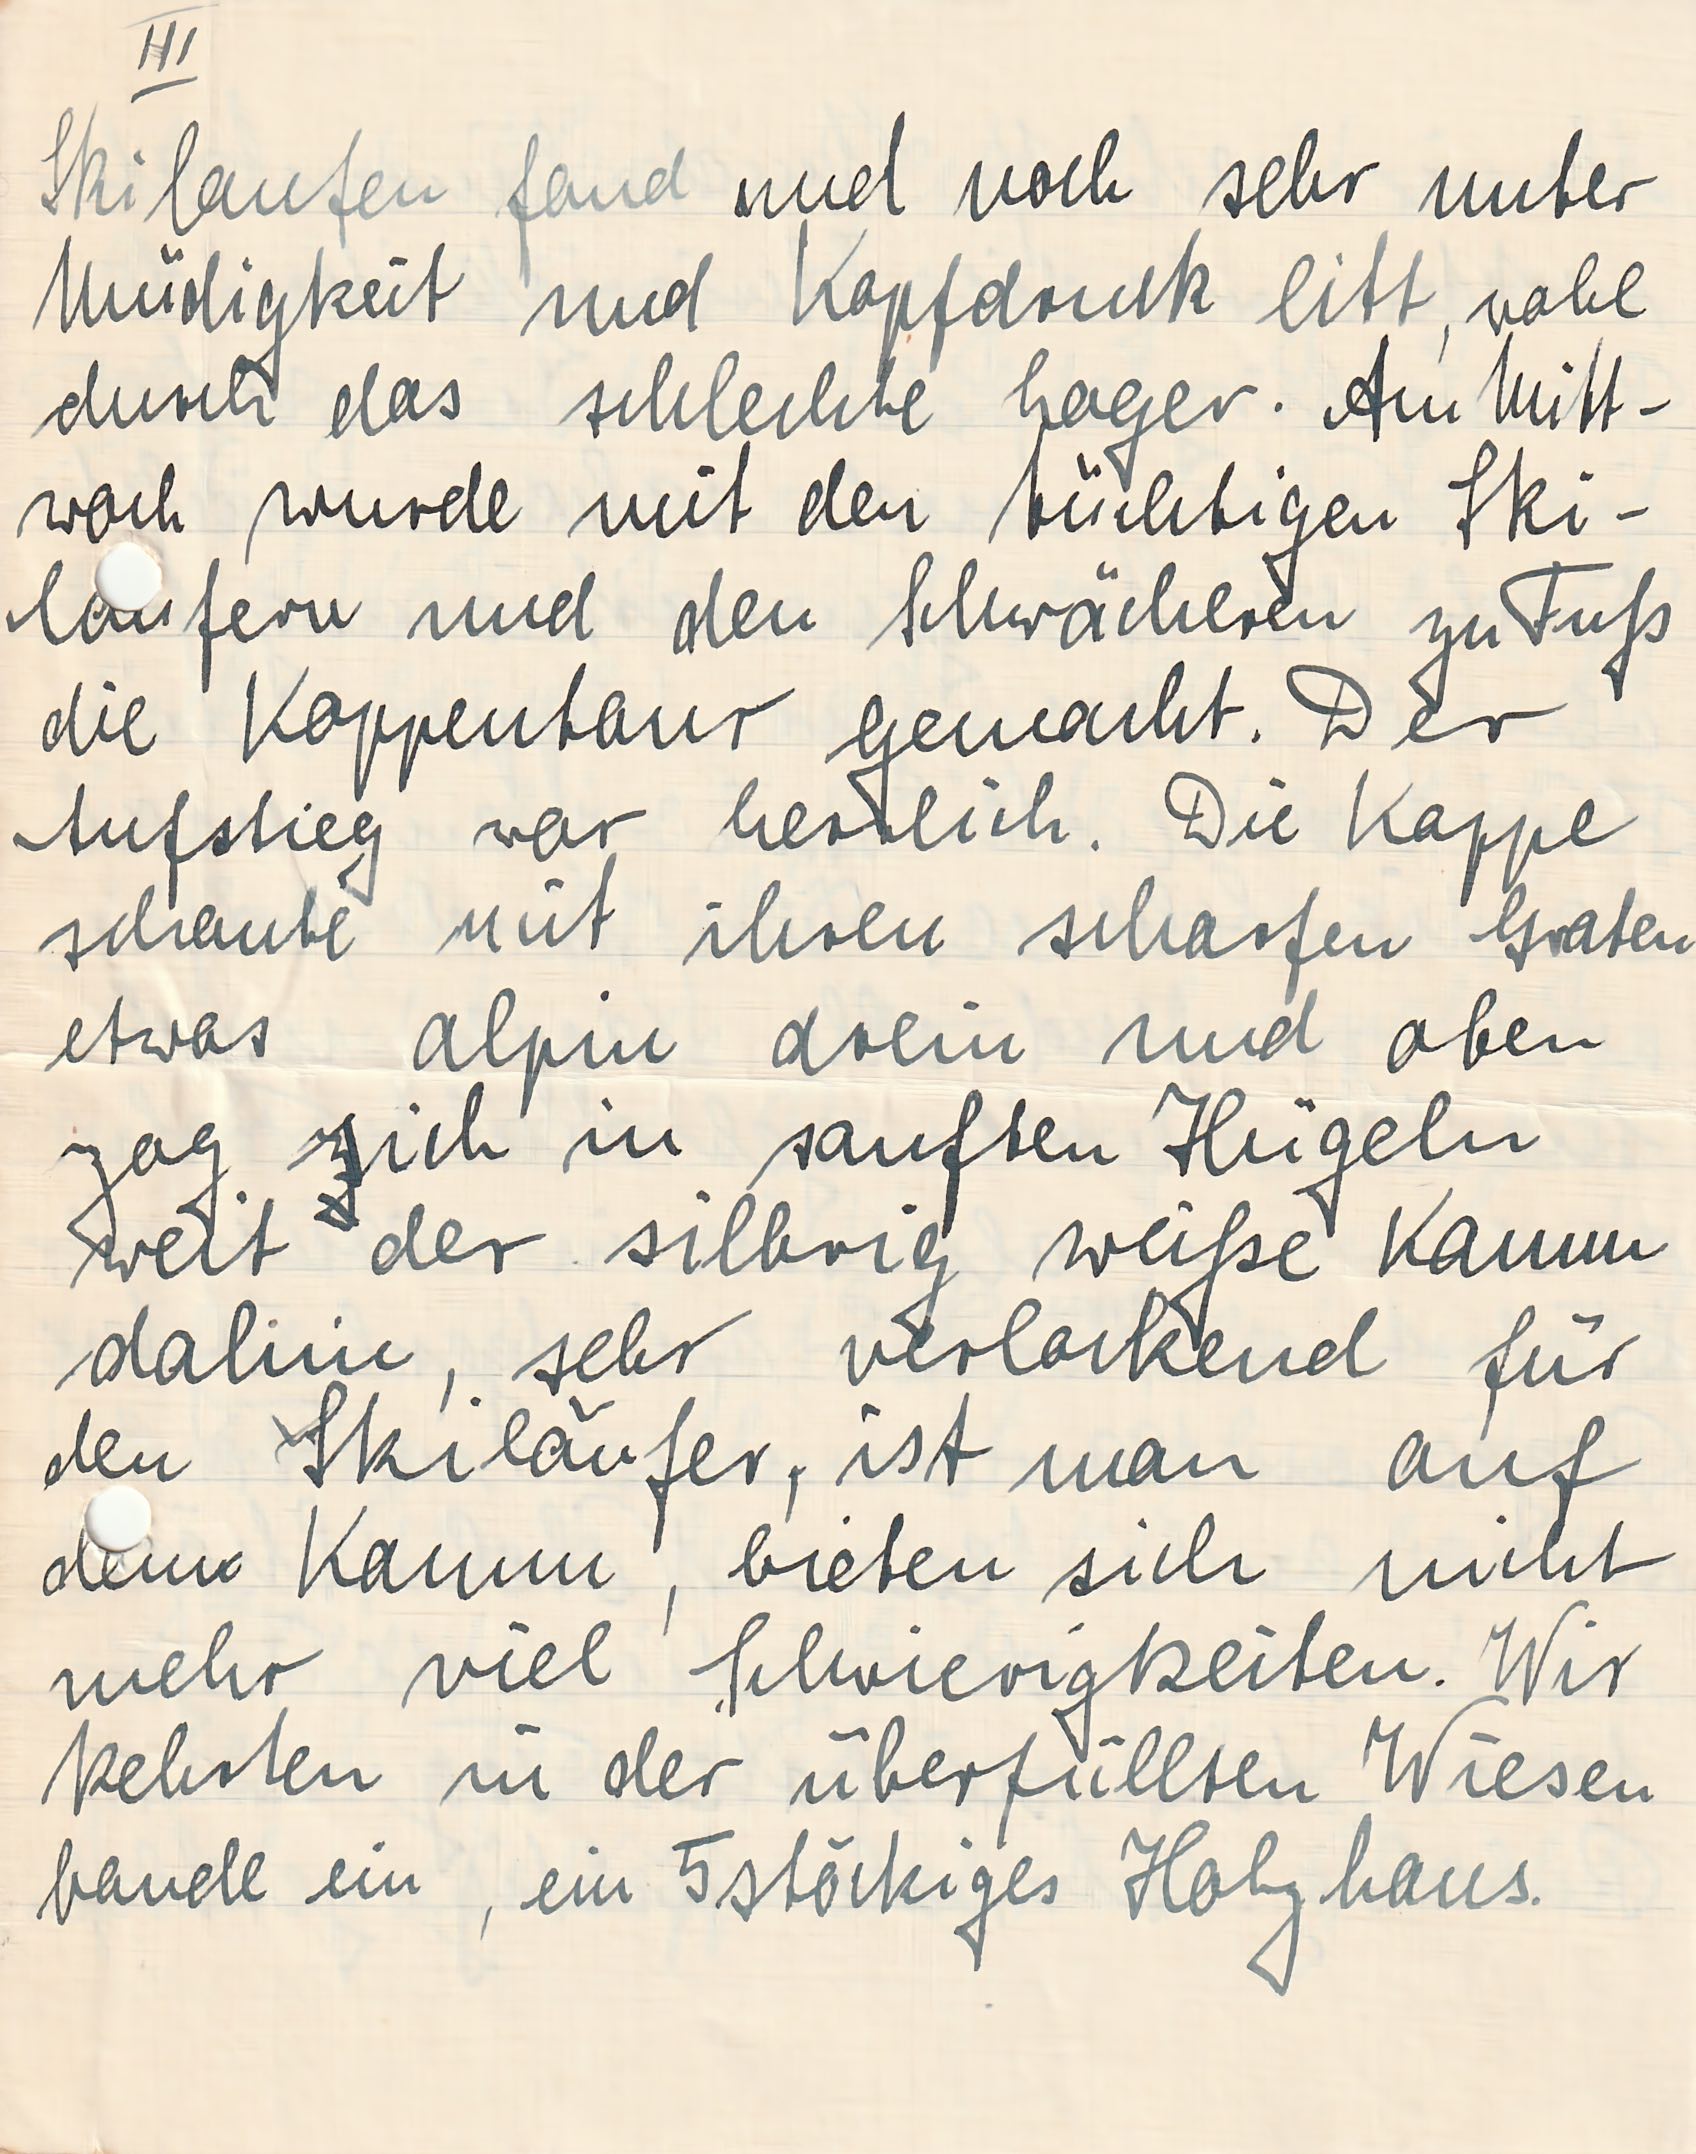 III
Skilaufen fand und noch sehr unter
Müdigkeit und Kopfdruck litt, wohl
durch das schlechte Lager. Am Mitt-
woch wurde mit den tüchtigen Ski-
laufern und den Schwächeren zu Fuß
die Koppentour gemacht. Der
Aufstieg war herrlich. Die Koppe
schaute mit ihren scharfen Graten
etwas alpin drein und oben
zog sich in sanften Hügeln
weit der silbrig weiße Kamm
dahin, sehr verlockend für
den Skiläufer, ist man auf
dem Kamm, bieten sich nicht
mehr viel Schwierigkeiten. Wir
kehrten in der überfüllten Wiesen
baude ein, ein 5stöckiges Holzhaus.